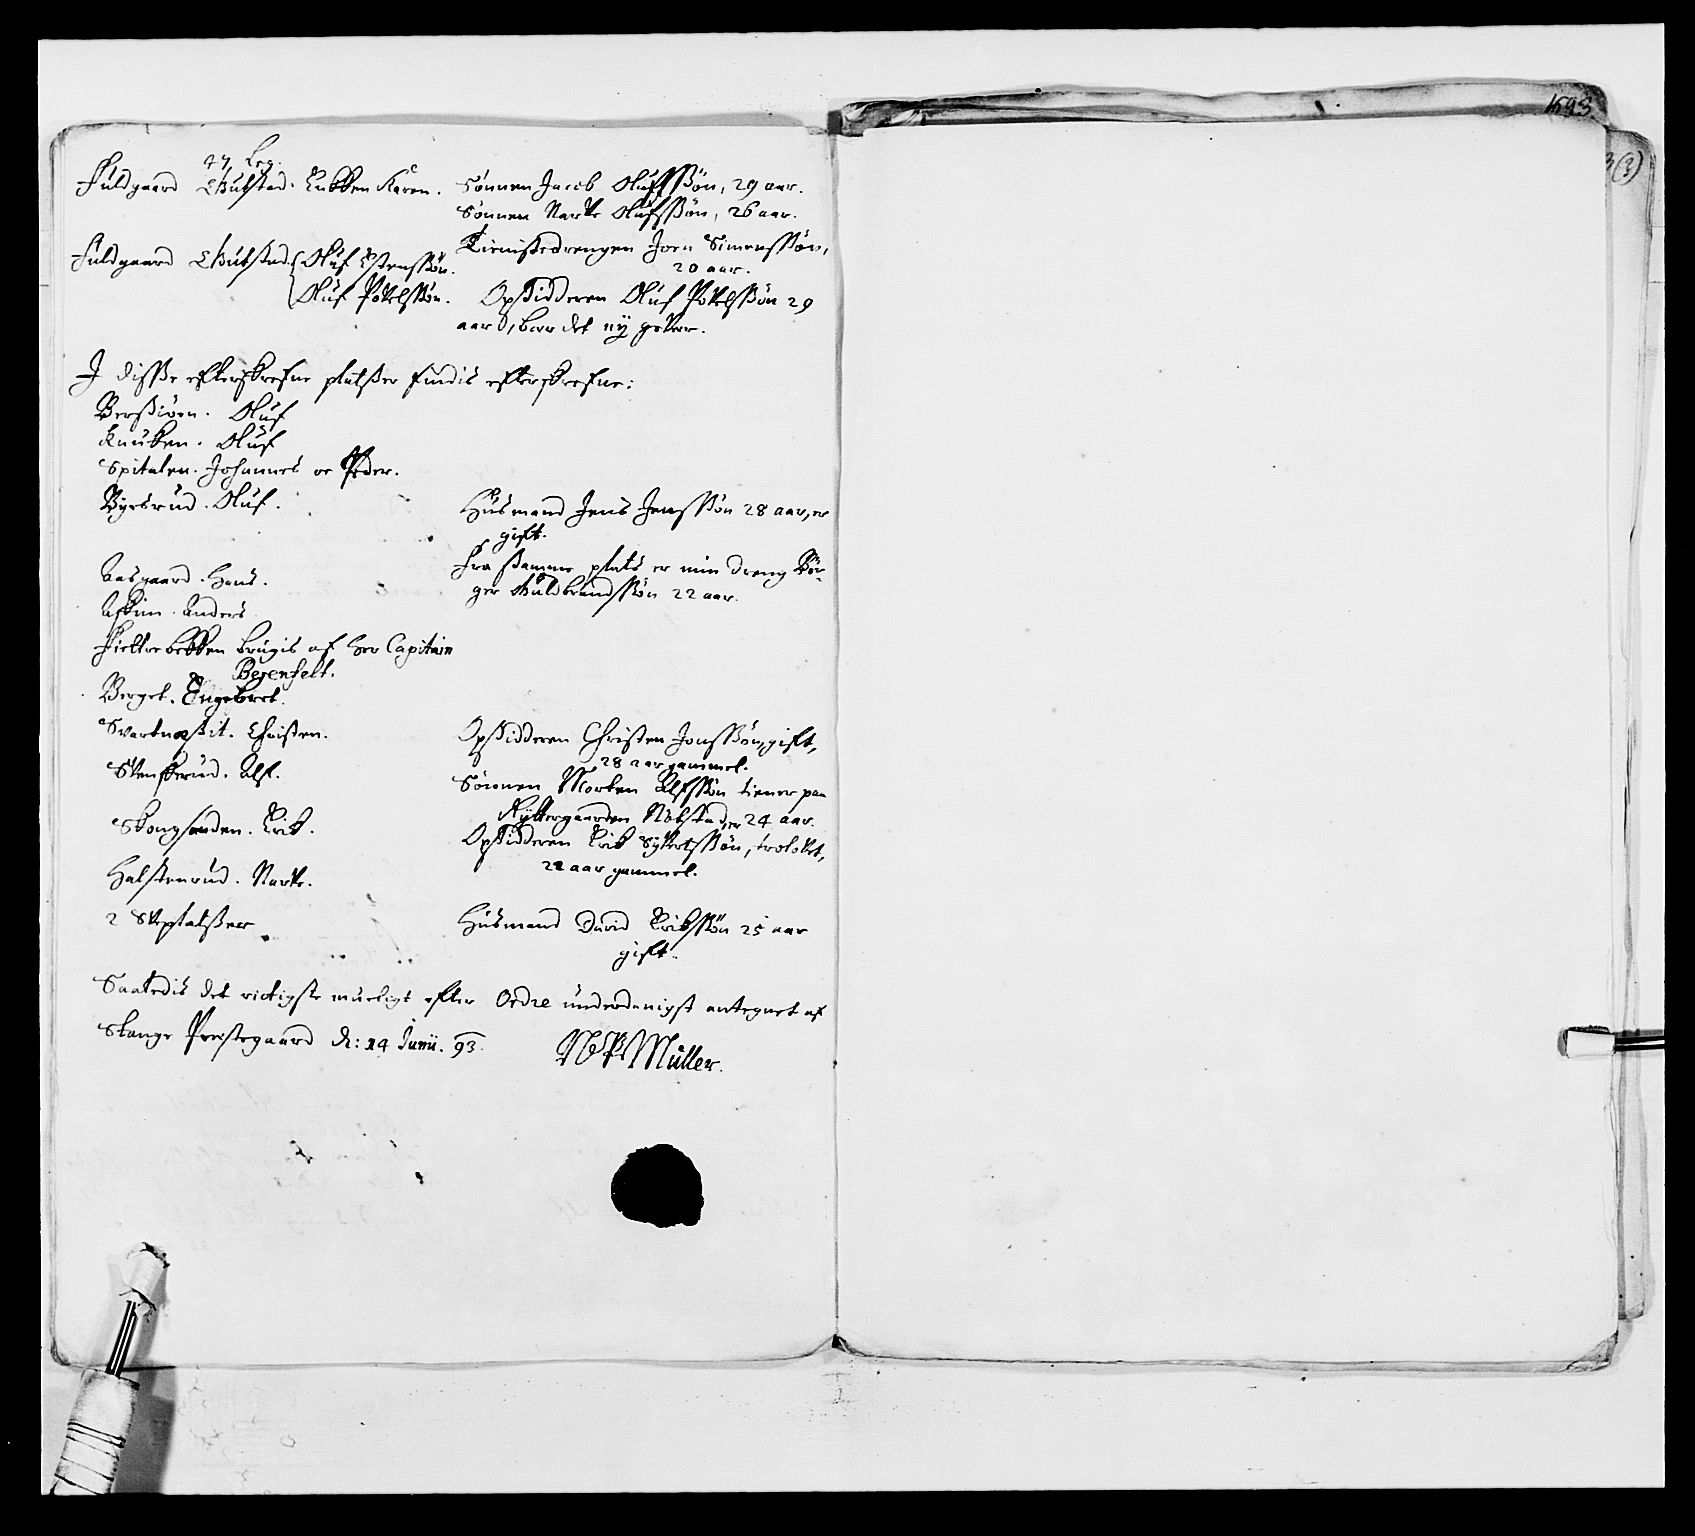 47 Leg.
Fuldgaard Gulstad. Encken Karen. Sønnen Jacob Oluffssøn, 29 aar.
Sønnen Narve Olufssøn, 26 aar.
Tienistedrengen Joen Simenssøn,
20 aar.
Fuldgaard Gulstad. Oluf Estenssøn.
Oluf Povelssøn. Opsidderen Oluf Povelssøn 29
aar, bær det ny gevær.
I disse efterskrefne pladsser findis efterskrefne:
Berssiøen. Oluf
Knuken. Oluf
Spitalen. Johannes oc Peder.
Byesrud. Oluf. Husmand Jens Jenssøn 28 aar, er
gift.
Fra samme plads er min dreng Bør-
ger Guldbrandssøn 22 aar.
Aasgaard. Hans.
Askim. Anders
Fieltrebecken brugis af Her Capitain
Besenfelt.
Berget. Engebret.
Svartnæskit. Christen. Opsidderen Christen Jonssøn, gift,
28 aar gammel.
Stenskerud. Ulf. Sønnen Morten Ulfssøn tiener paa
Ryttergaarden Nøbstad, er 24 aar.
Skougenden. Erik. Opsidderen Erik Syvertssøn, trolovet,
22 aar gammel.
Halstenrud. Narve.
2 Støpladsser Husmand David Erikssøn 25 aar
gift.
Saaledis det rictigste mueligt efter Ordre underdanigst antegnet af
Stange Prestegaard d: 14 Junii. 93.
Müller.
1693
(3)